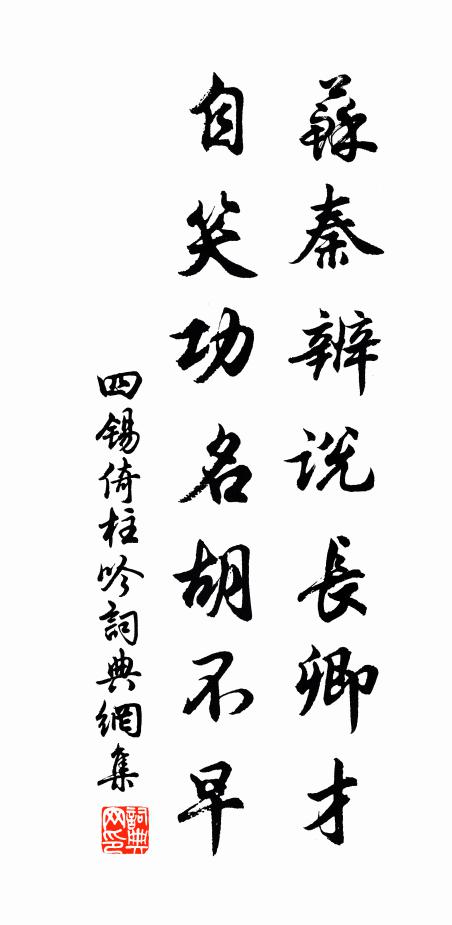 蘇秦辨説長卿才
自笑功名胡不早
四錫倚柱吟詞典網集
詞典網印